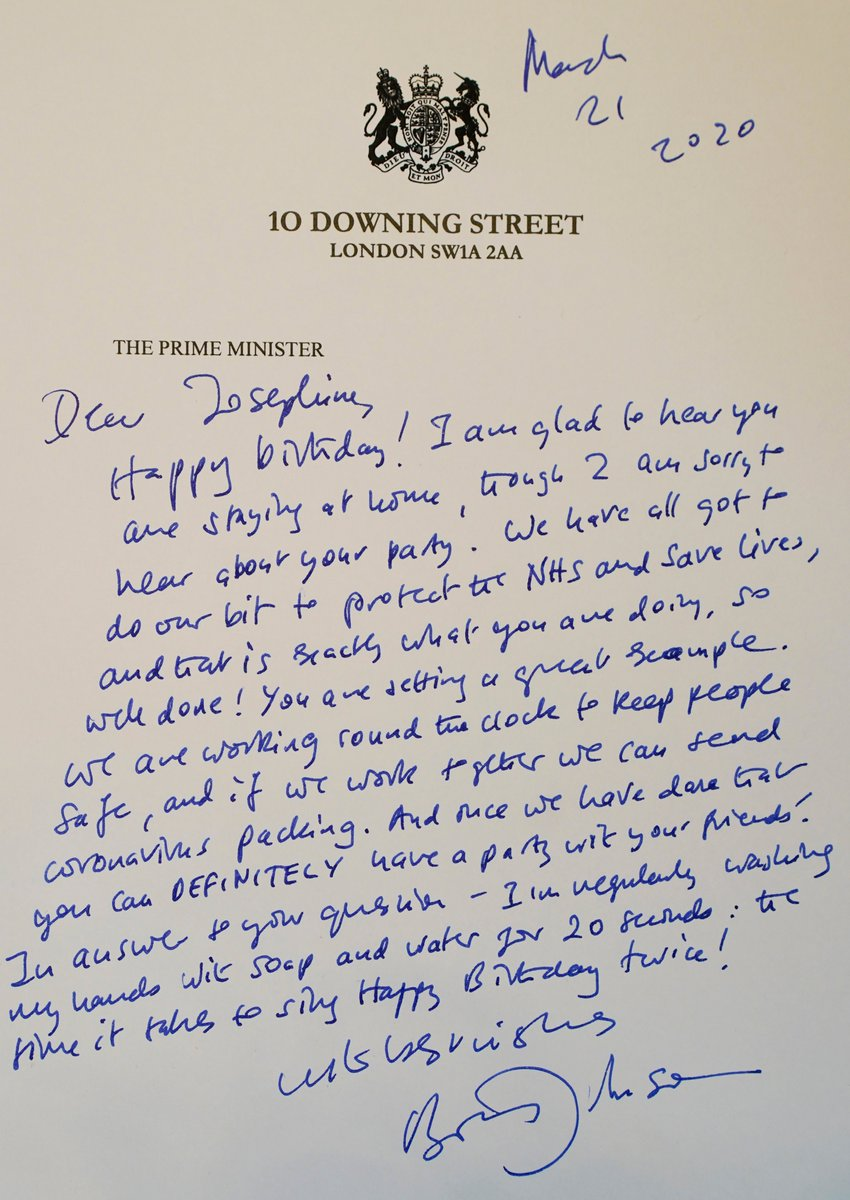 March
21
2020
HONI SOIT QUI MAL Y PENSE
DIEU ET MON DROIT
10 DOWNING STREET
LONDON SW1A 2AA
THE PRIME MINISTER
Dear Josephine,
Happy birthday! I am glad to hear you
are staying at home, though I am sorry to
hear about your party. We have all got to
do our bit to protect the NHS and save lives,
and that is exactly what you are doing, so
well done! You are setting a great example.
We are working round the clock to keep people
safe, and if we work together we can send
coronavirus packing. And once we have done that
you can DEFINITELY have a party with your friends!
In answer to your question - I'm regularly washing
my hands with soap and water for 20 seconds: the
time it takes to sing Happy Birthday twice!
With best wishes
Boris Johnson